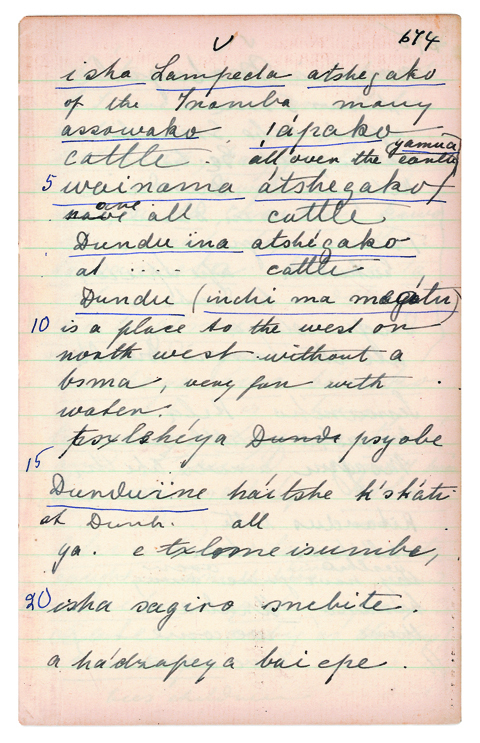 ✓ 674
isha Lampeda atshegako
of the Inamba many
assowako ǀápako (yamua
cattle . all over the earth)
5 wainama átshegako/
have are all cattle
Dundu ina atshégako
at .... cattle
Dundu (indri ma magátu)
10 is a place to the west or
north west without a
boma, very far with
water.
Dundu psyobe
15
Dunduïne háitshe k'sháti
at Dundu. all
ya. isumibe,
20 isha sagiro snebite.
a hádzapeya bai epe.